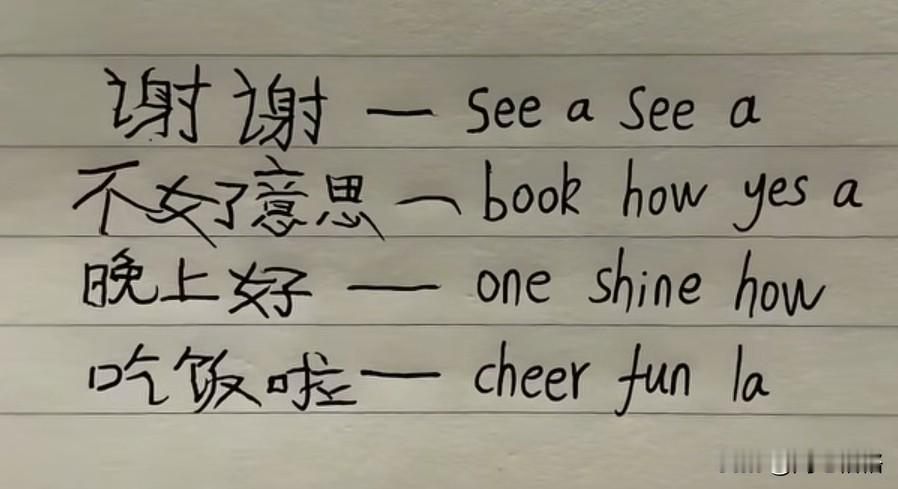 谢谢 — See a See a
不好意思 — book how yes a
晚上好 — one shine how
吃饭啦 — cheer fun la